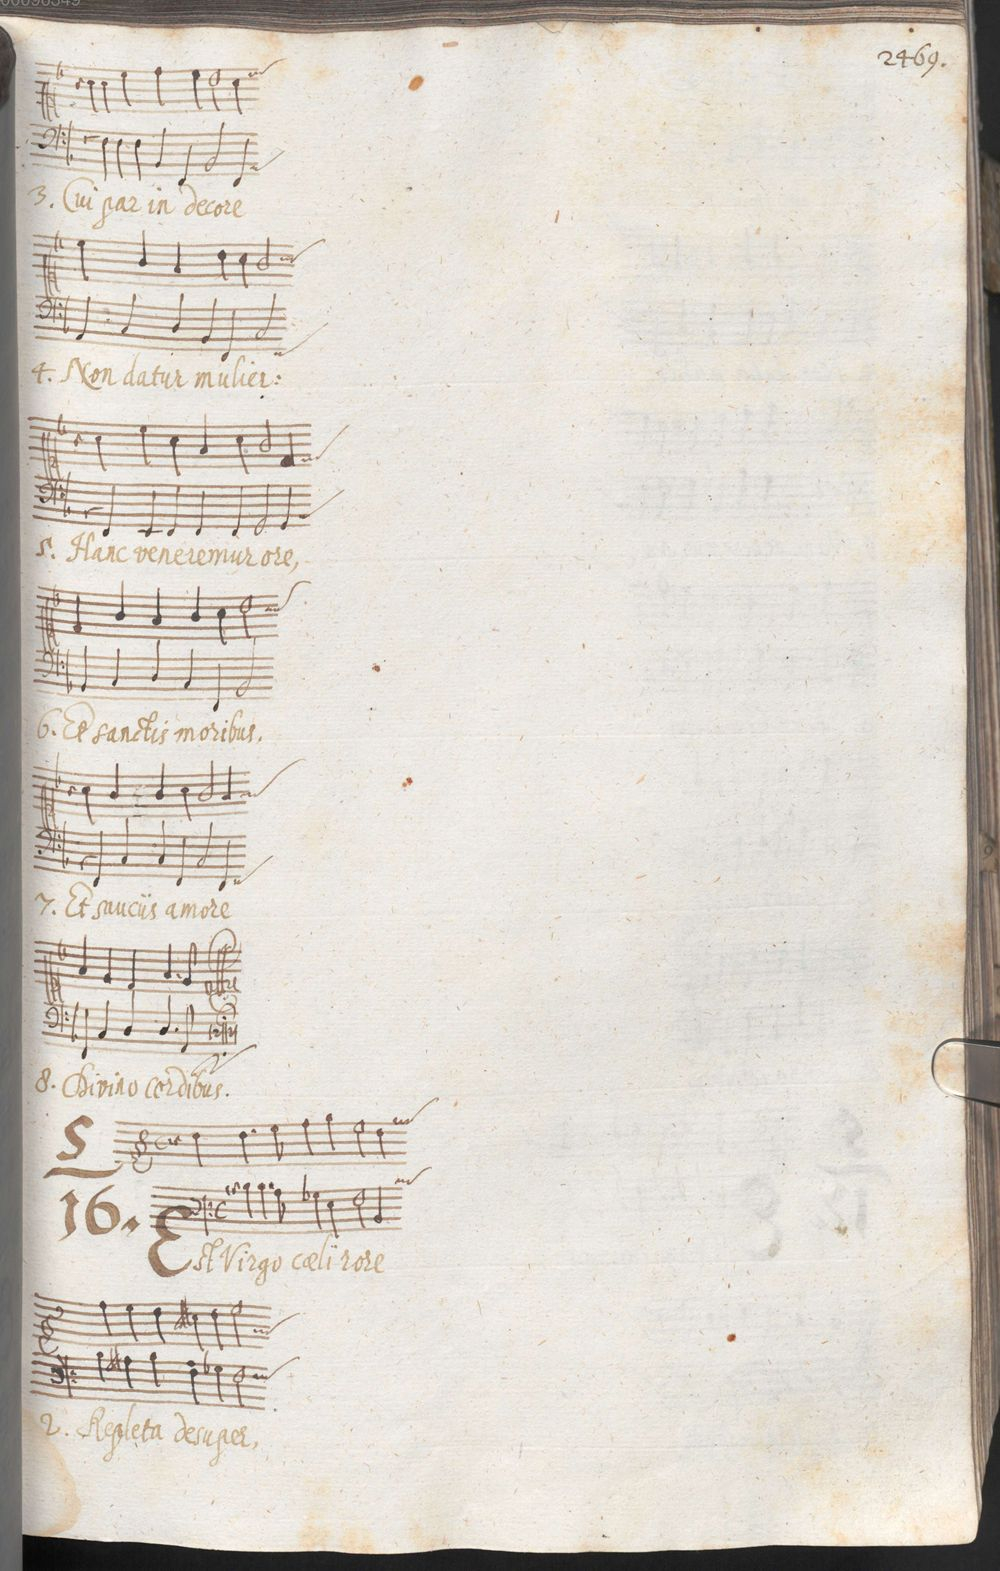 2469.
3. Cui par in decore
4. Non datur mulier:
5. Hanc veneremur ore,
6. Et sanctis moribus.
7. Et sauciis amore
8. Divino cordibus.
S
16. Est Virgo cœli rore
2. Repleta desuper,